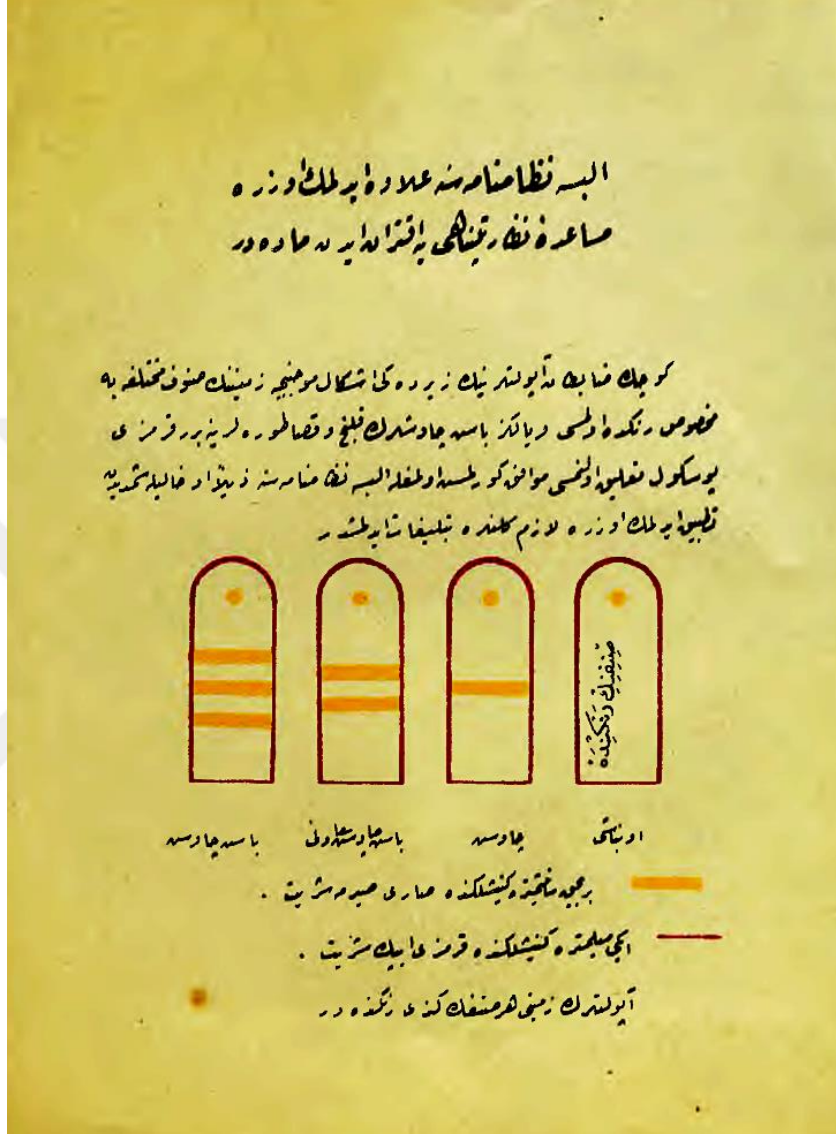 البسه نظامنامه‌سنه علاوه ایدلمك اوزره
مساعدهٔ نظارتپناهی یه اقتران ایدن ماده در
كوچك ضابطان آپولتلرینك زیرده كی اشكال موجبنجه زمیننك صنوف مختلفه یه
مخصوص رنكده اولمسی ویالكز باش چاوشلرك قلیج وقصاطوره لرینه برر قرمزی
پوسكول تعلیق اولنمسی موافق كورلمش اولمغله البسه نظامنامه سنه ذیلاً ادخالیله شمدیدن
تطبیق ایدلمك اوزره لازم كلنلره تبلیغات ایدلمشدر
صنفینك رنكینده
اونباشی
چاوش
باش چاوش معاونی
باش چاوش
بر سانتیمتره كنیشلكنده صاری صیرمه شریت .
ایكی میلیمتره كنیشلكنده قرمزی ایپك شریت .
آپولتلرك زمینی هر صنفك كندی رنكنده در